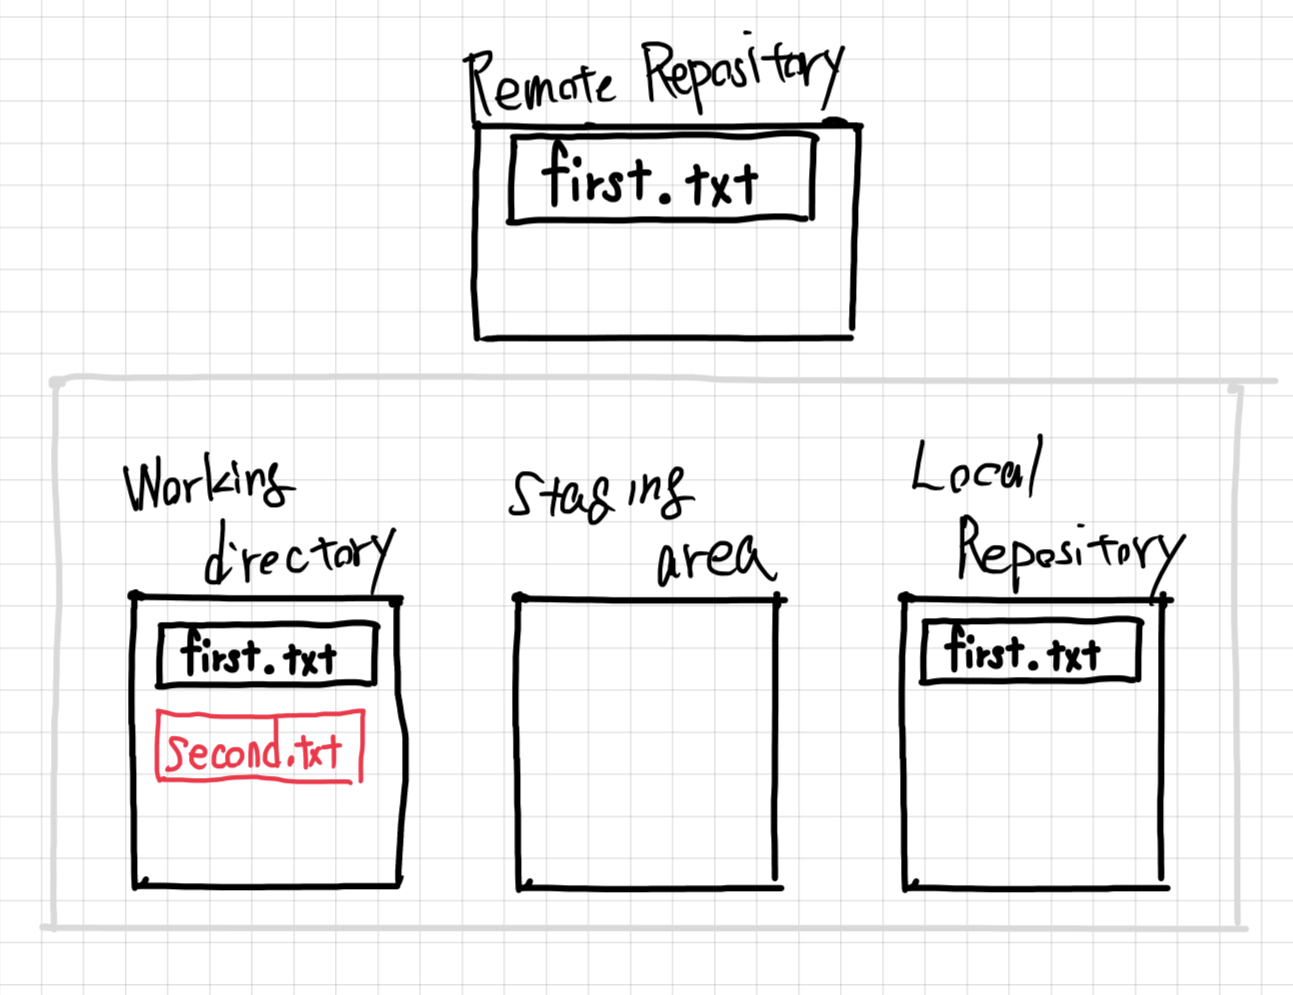 Remote Repository
first.txt
Working
directory
first.txt
second.txt
Staging
area
Local
Repository
first.txt